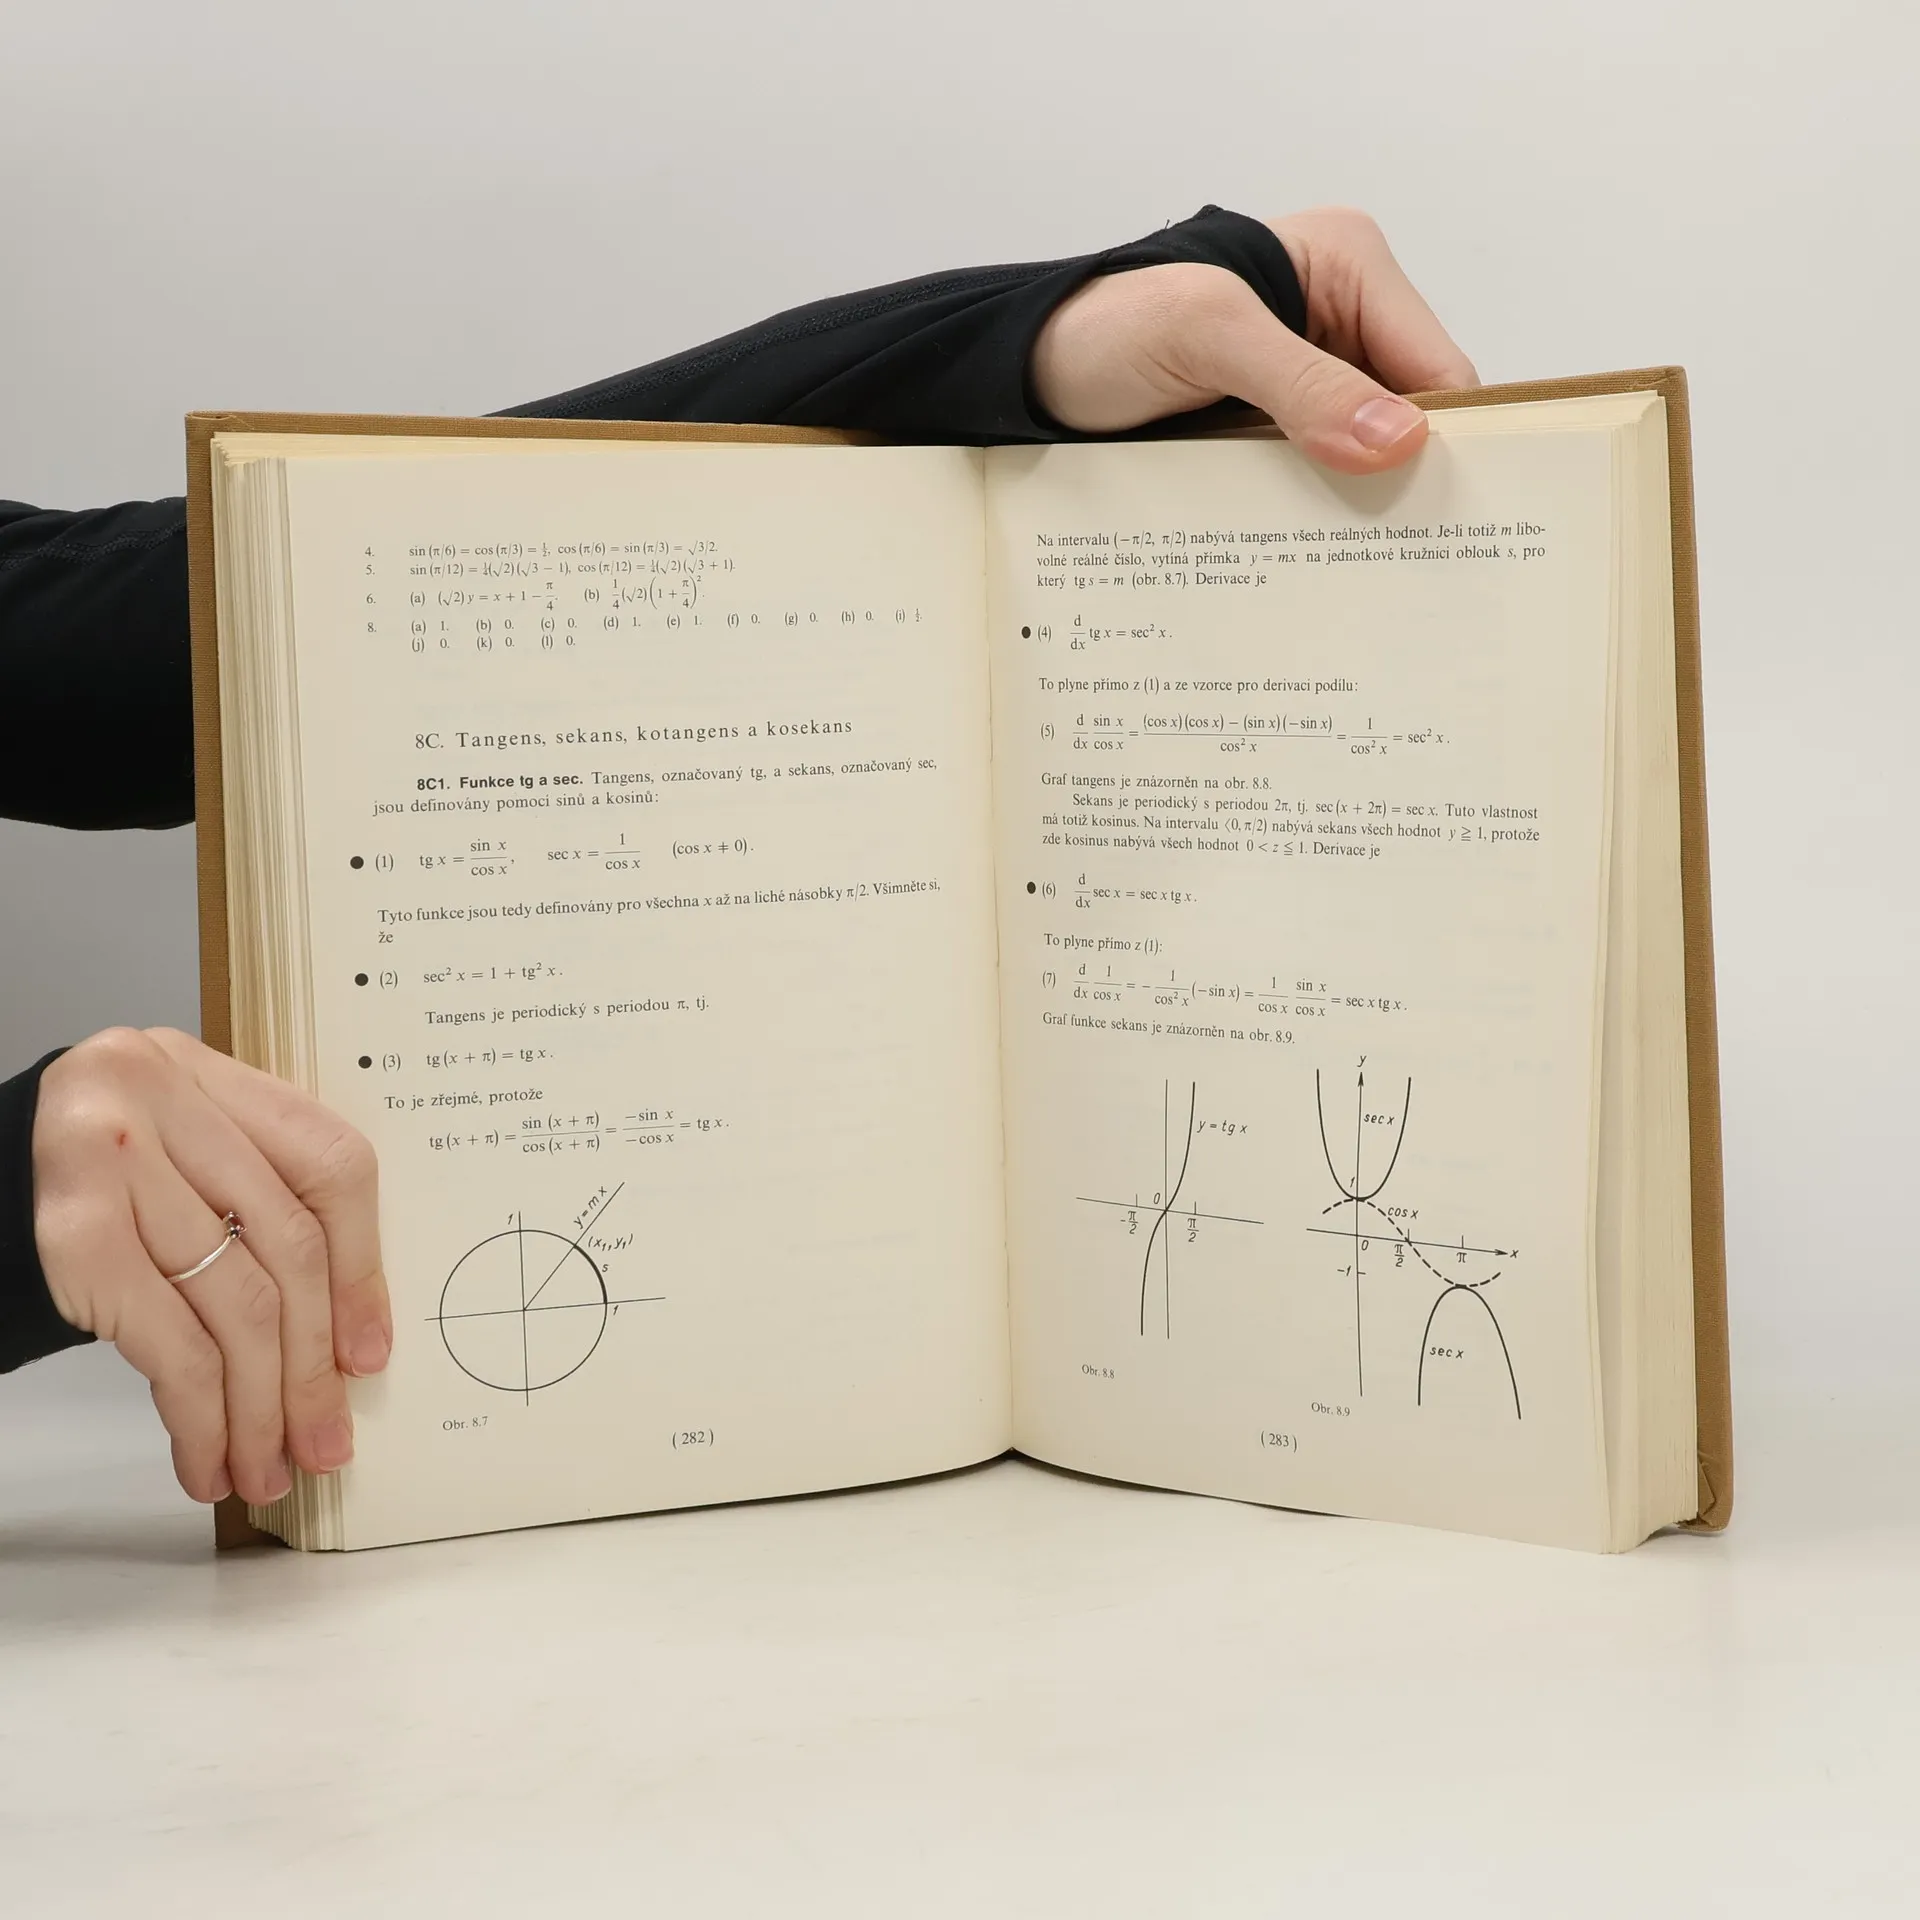 4. sin (π/6) = cos (π/3) = ½, cos (π/6) = sin (π/3) = √3/2.
5. sin (π/12) = ¼(√2)(√3 − 1), cos (π/12) = ¼(√2)(√3 + 1).
6. (a) (√2) y = x + 1 − π/4. (b) 1/4 (√2)(1 + π/4)².
8. (a) 1. (b) 0. (c) 0. (d) 1. (e) 1. (f) 0. (g) 0. (h) 0. (i) ½.
(j) 0. (k) 0. (l) 0.
8C. Tangens, sekans, kotangens a kosekans
8C1. Funkce tg a sec. Tangens, označovaný tg, a sekans, označovaný sec,
jsou definovány pomocí sinů a kosinů:
● (1) tg x = sin x / cos x, sec x = 1 / cos x (cos x ≠ 0).
Tyto funkce jsou tedy definovány pro všechna x až na liché násobky π/2. Všimněte si,
že
● (2) sec² x = 1 + tg² x.
Tangens je periodický s periodou π, tj.
● (3) tg (x + π) = tg x.
To je zřejmé, protože
tg (x + π) = sin (x + π) / cos (x + π) = −sin x / −cos x = tg x.
1
y=mx
(x₁, y₁)
s
1
Obr. 8.7
(282)
Na intervalu (−π/2, π/2) nabývá tangens všech reálných hodnot. Je-li totiž m libo-
volné reálné číslo, vytíná přímka y = mx na jednotkové kružnici oblouk s, pro
který tg s = m (obr. 8.7). Derivace je
● (4) d/dx tg x = sec² x.
To plyne přímo z (1) a ze vzorce pro derivaci podílu:
(5) d/dx sin x / cos x = (cos x)(cos x) − (sin x)(−sin x) / cos² x = 1 / cos² x = sec² x.
Graf tangens je znázorněn na obr. 8.8.
Sekans je periodický s periodou 2π, tj. sec (x + 2π) = sec x. Tuto vlastnost
má totiž kosinus. Na intervalu ⟨0, π/2) nabývá sekans všech hodnot y ≧ 1, protože
zde kosinus nabývá všech hodnot 0 < z ≦ 1. Derivace je
● (6) d/dx sec x = sec x tg x.
To plyne přímo z (1):
(7) d/dx 1 / cos x = − 1 / cos² x (−sin x) = 1 / cos x sin x / cos x = sec x tg x.
Graf funkce sekans je znázorněn na obr. 8.9.
y = tg x
0
−π/2
π/2
Obr. 8.8
y
sec x
1
cos x
0
π/2
π
x
−1
sec x
Obr. 8.9
(283)